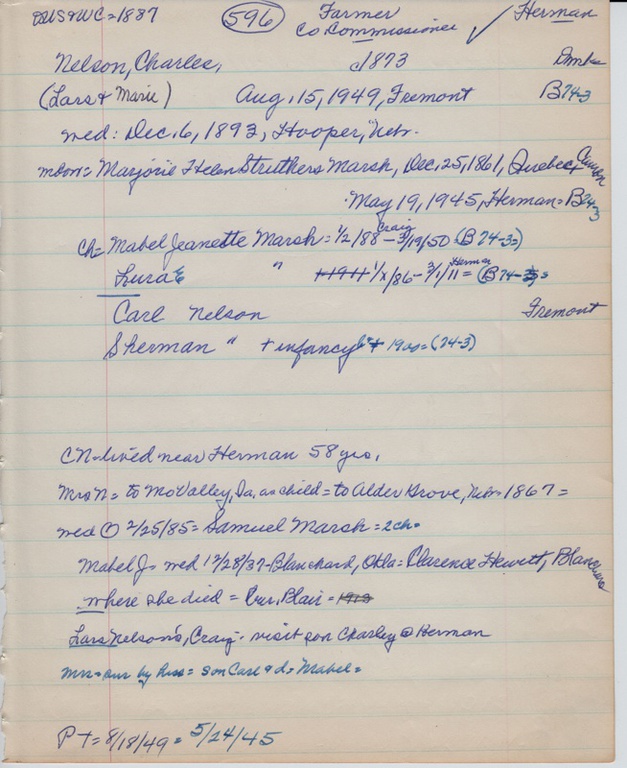 US+WC=1887 596 Farmer ✓ Herman
Co Commissioner
Nelson, Charles, c1873 Dmk
(Lars + Marie) Aug. 15, 1949, Fremont B74-3
wed: Dec. 6, 1893, Hooper, Nebr.
Marjorie Helen Struthers Marsh, Dec, 25, 1861, Quebec,
May 19, 1945, Herman = B74-3
Craig
ch= Mabel Jeanette Marsh = 1/2/88 - 3/19/50 = (B 74-3=)
Herman
Lura E " 1/x/86 - 3/1/11 = (B 74-
Carl Nelson Fremont
Sherman " + infancy 1900 = (74-3)
CN= lived near Herman 58 yrs,
Mrs N = to Mo Valley, Ia, as child = to Alder Grove, Nebr 1867 =
wed ① 2/25/85 = Samuel Marsh = 2ch=
Mabel J= wed 12/28/37 - Blanchard, Okla = Clarence Hewitt, Blanchard
where she died = bur. Blair = 1913
Lars Nelson's, Craig - visit son Charley @ Herman
Mrs = sur by hus = son Carl + d= Mabel =
P T = 8/18/49 = 5/24/45